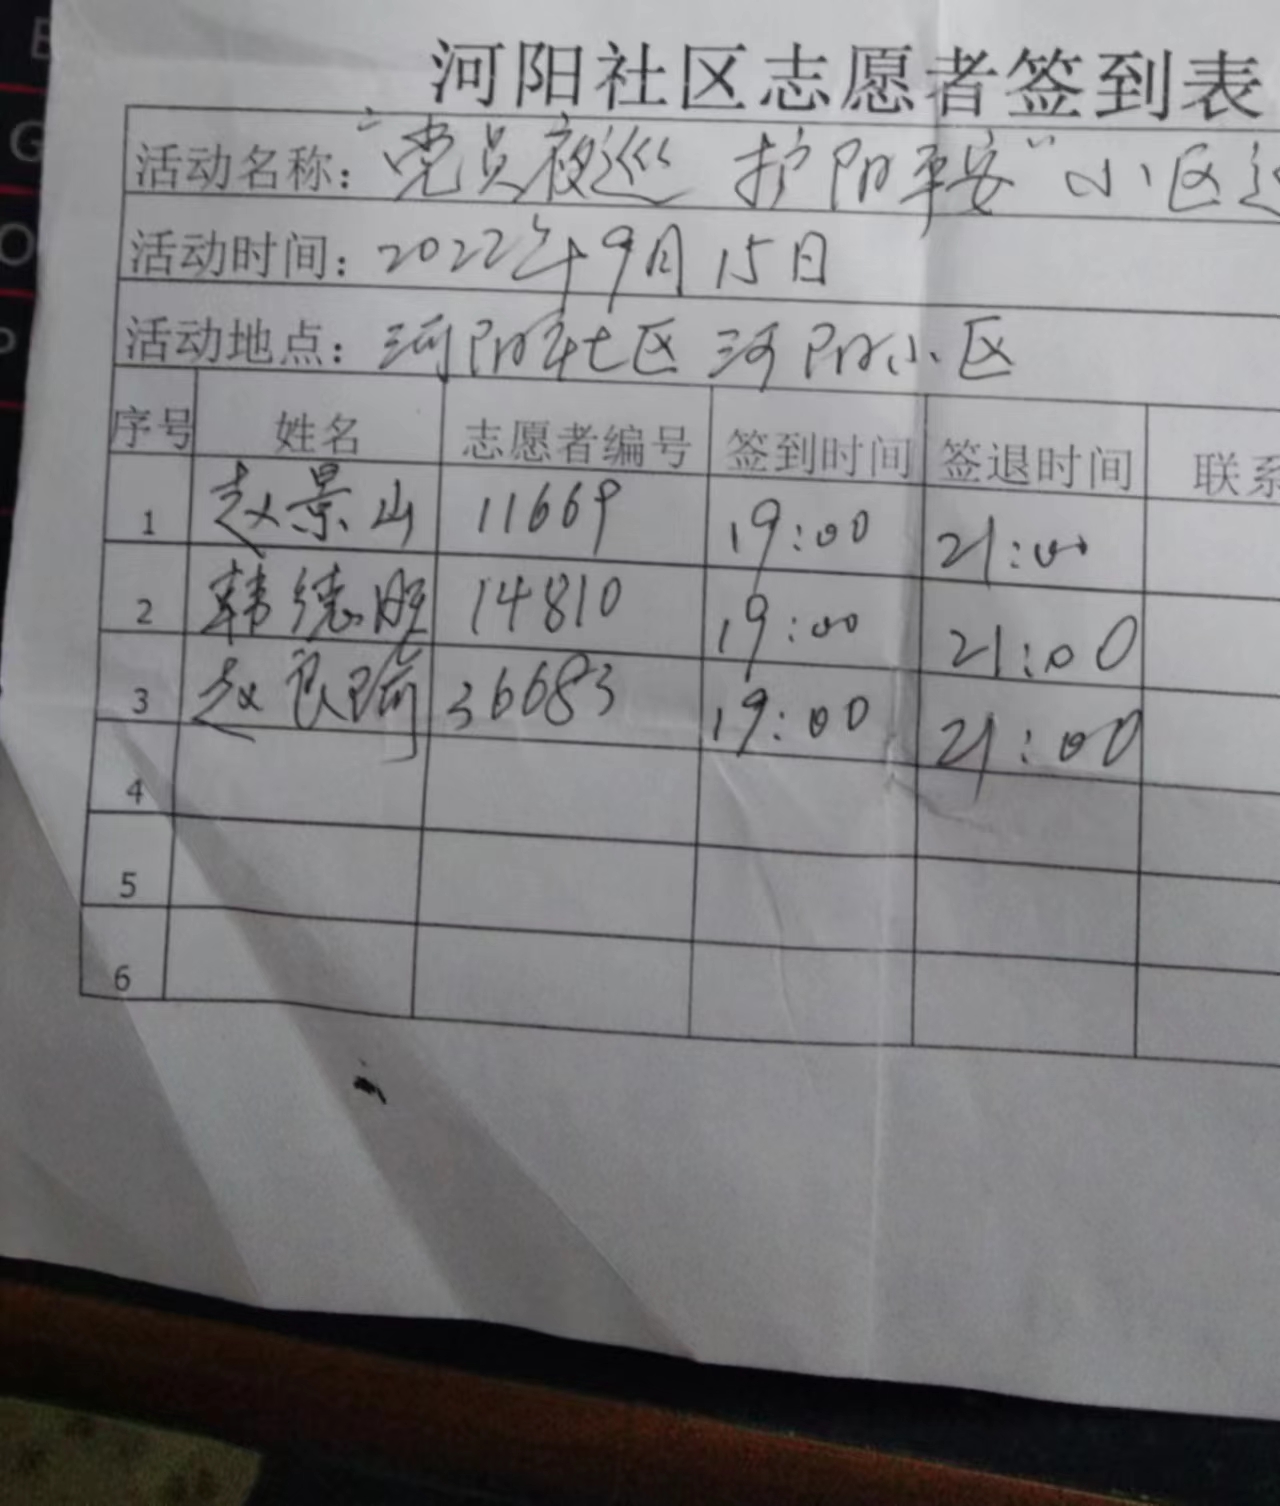 河阳社区志愿者签到表
活动名称：“党员夜巡 护阳平安”小区
活动时间：2022年9月15日
活动地点：河阳社区河阳小区
序号 姓名 志愿者编号 签到时间 签退时间 联系
1 赵景山 11669 19:00 21:00
2 韩德顺 14810 19:00 21:00
3 赵良瑜 36683 19:00 21:00
4
5
6